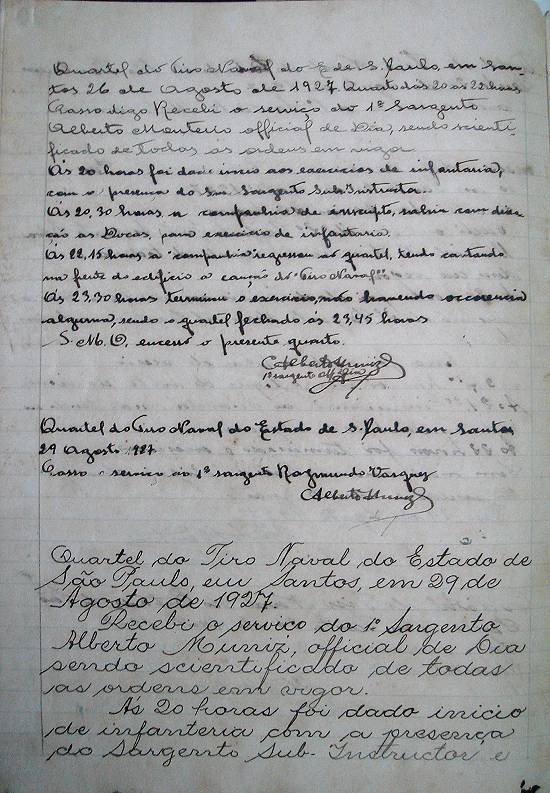 Quartel do Tiro Naval do E. de S. Paulo, em San-
tos 26 de Agosto de 1927. Quarto dás 20 as 22 horas
Passo digo Recebi o serviço do 1º Sargento
Alberto Monteiro official de Dia, sendo scienti-
ficado de todas as ordens em vigor
Ás 20 horas foi dado inicio aos exercicios de infantaria,
com a presença do Snr. Sargento Sub-Instructor.
Ás 20,30 horas a companhia de inscripto, sahiu com dire-
ção as Docas, para exercicio de infantaria.
Ás 22,15 horas a companhia regressou ao quartel, tendo cantando
na frente do edificio a canção do "Tiro Naval".
Ás 23,30 horas terminou o exercicio, não havendo occorencia
alguma, sendo o quartel fechado ás 23,45 horas
S. M. O, encerro o presente quarto.
Alberto Muniz
1º sargento
Quartel do Tiro Naval do Estado de S. Paulo, em Santos
29 Agosto 927
Passo o serviço ao 1º sargento Raymundo Vasquez
Alberto Muniz
Quartel do Tiro Naval do Estado de
São Paulo, em Santos, em 29 de
Agosto de 1927.
Recebi o serviço do 1º Sargento
Alberto Muniz, official de Dia
sendo scientificado de todas
as ordens em vigor.
Ás 20 horas foi dado inicio
de infanteria com a presença
do Sargento Sub-Instructor e